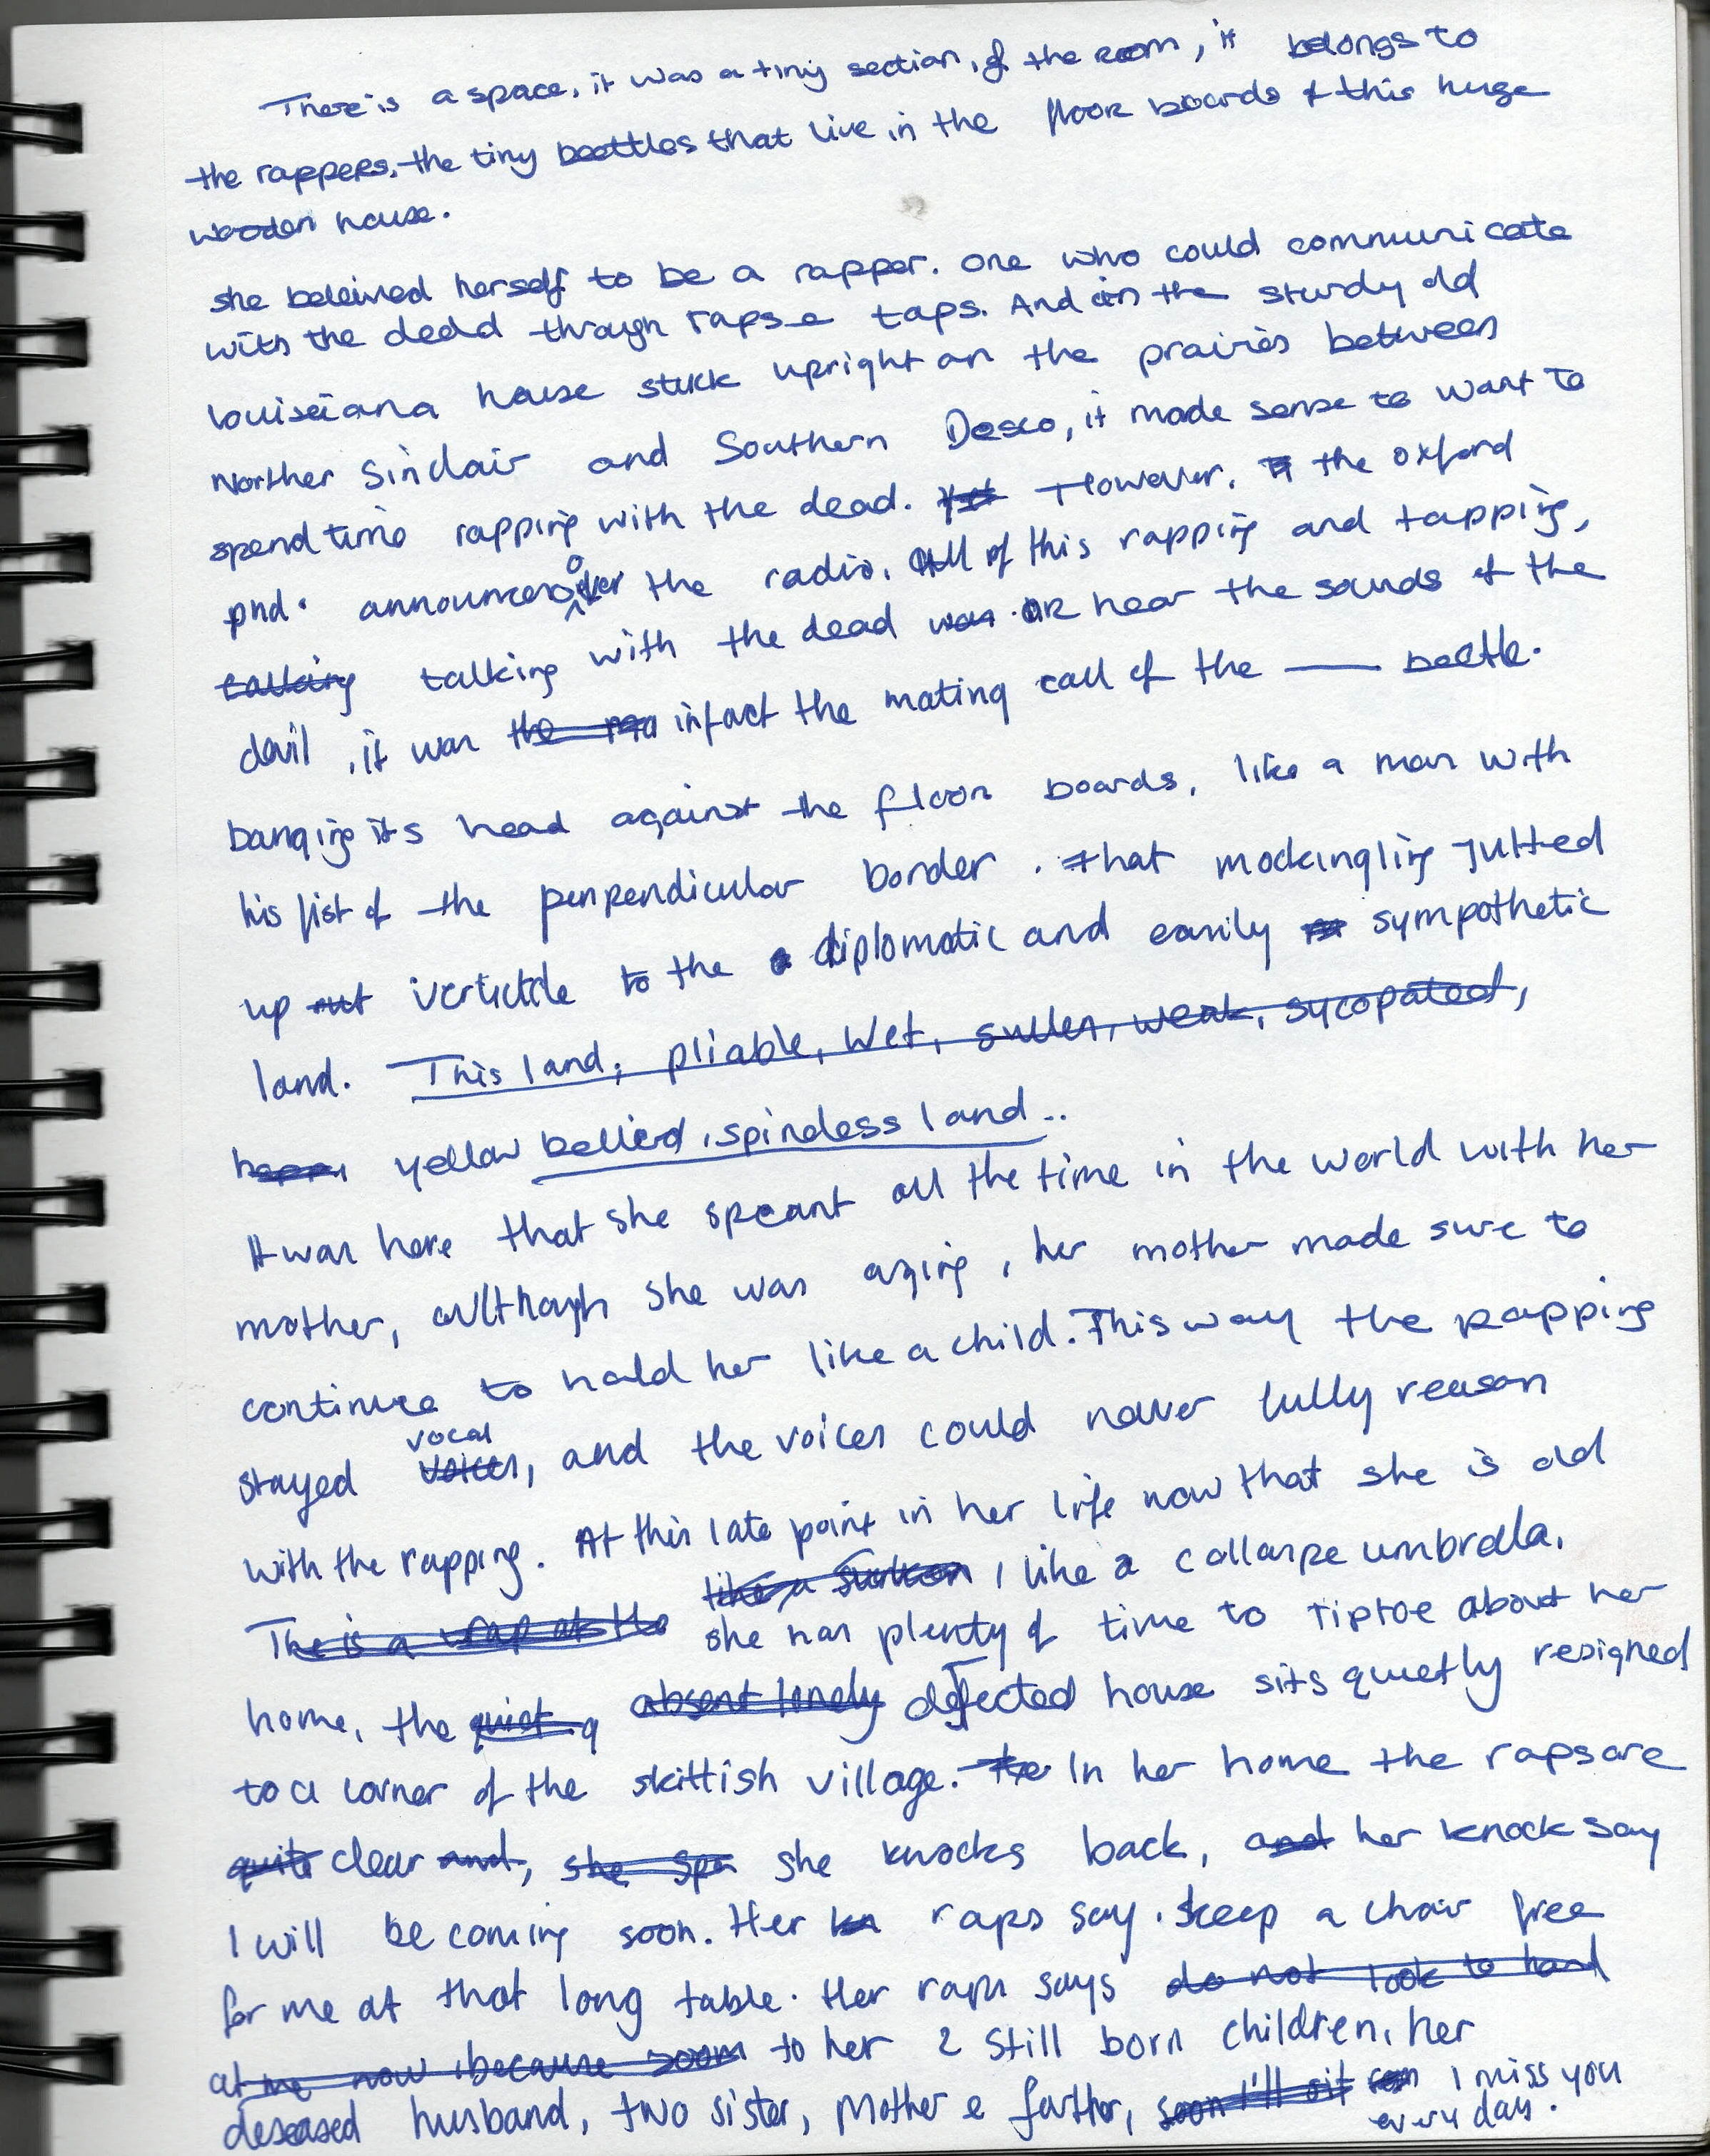 There is a space, it was a tiny section, of the room, it belongs to
the rappers, the tiny beettles that live in the floor boards of this huge
wooden house.
she beleived herself to be a rapper. one who could communicate
with the dead through raps e taps. And in the sturdy old
louiseiana house stuck upright on the prairies between
Norther Sinclair and Southern Desco, it made sense to want to
spend time rapping with the dead. Yet However, the oxford
phd. announced over the radio, All of this rapping and tapping,
talking talking with the dead was OR hear the sounds of the
devil, it was the rap infact the mating call of the —— beetle.
banging its head against the floor boards, like a man with
his fist of the perpendicular border. that mockingling jutted
up out verticle to the diplomatic and easily sympathetic
land. This land; pliable, wet, sullen, weak, sycopated,
yellow bellied, spineless land..
It was here that she speant all the time in the world with her
mother, allthough she was aging, her mother made sure to
continue to hold her like a child. This way the rapping
stayed voices, vocal and the voices could never fully reason
with the rapping. At this late point in her life now that she is old
The is a wrap at the like a sunken, like a collapse umbrella.
she has plenty of time to tiptoe about her
home, the quiet q absent lonely defected house sits quietly resigned
to a corner of the skittish village. The In her home the raps are
quite clear and, she spe she knocks back, and her knock say
I will be coming soon. Her kn raps say. keep a chair free
for me at that long table. Her raps says do not look to hard
at me now, because soon to her 2 still born children, her
deseased husband, two sister, mother e farther, soon I'll sit I miss you
every day.